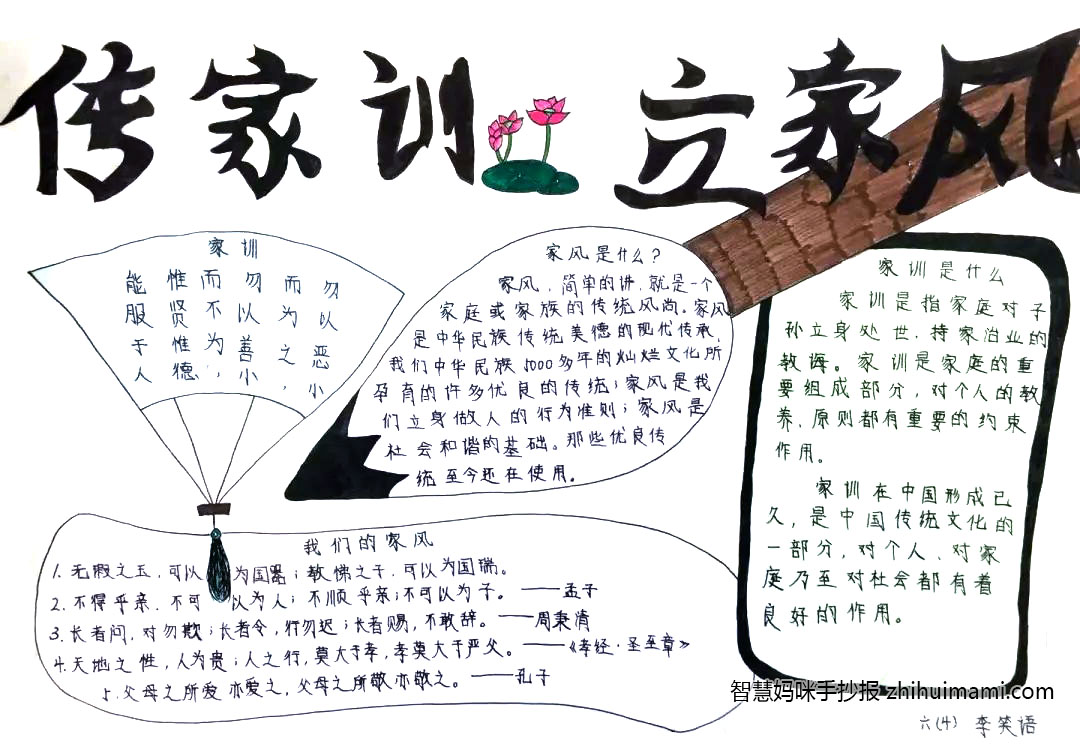 传家训 立家风
家训
勿以恶小
而为之，
勿以善小
而不为，
惟贤惟德
能服于人
家风是什么？
家风，简单的讲，就是一个
家庭或家族的传统风尚。家风
是中华民族传统美德的现代传承，
我们中华民族5000多年的灿烂文化所
孕育的许多优良的传统；家风是我
们立身做人的行为准则；家风是
社会和谐的基础。那些优良传
统至今还在使用。
家训是什么
家训是指家庭对子
孙立身处世，持家治业的
教诲。家训是家庭的重
要组成部分，对个人的教
养、原则都有重要的约束
作用。
家训在中国形成已
久，是中国传统文化的
一部分，对个人、对家
庭乃至对社会都有着
良好的作用。
我们的家风
1. 无瑕之玉，可以为国器；教悌之子，可以为国瑞。
2. 不得乎亲，不可以为人；不顺乎亲；不可以为子。——孟子
3. 长者问，对勿欺；长者令，行勿迟；长者赐，不敢辞。——周秉清
4. 天地之性，人为贵；人之行，莫大于孝，孝莫大于严父。——《孝经·圣至章》
5. 父母之所爱亦爱之，父母之所敬亦敬之。——孔子
智慧妈咪手抄报 zhihuimami.com
六(4) 李笑语